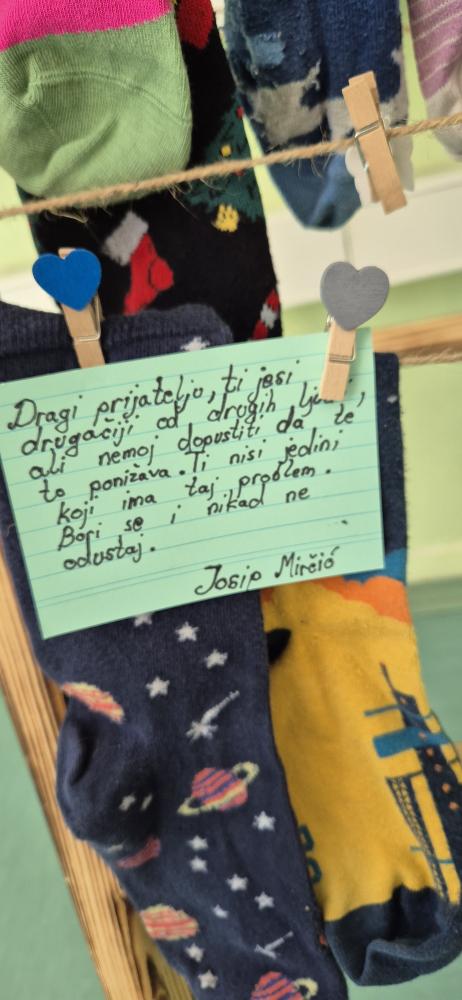 Dragi prijatelju, ti jesi
drugačiji od drugih ljudi,
ali nemoj dopustiti da te
to ponižava. Ti nisi jedini
koji ima taj problem.
Bori se i nikad ne
odustaj.
Josip Mirčić